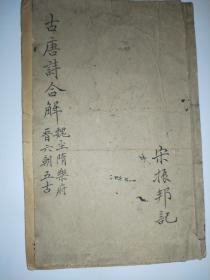 古唐詩合解
魏至隋樂府
晉六朝五古
宋振邦記